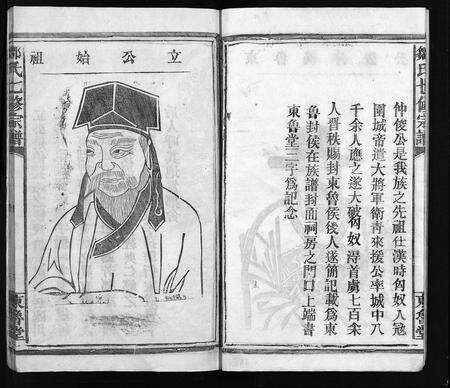 鄒氏七修宗譜
東魯堂
仲俊公是我族之先祖仕漢時匈奴人冠
圍城帝遣大將軍衛青來援公率城中八
千余人應之遂大破匈奴得首虜七百余
人晋秩賜封東魯侯後人遂簡記載爲東
魯封侯在族譜封面祠房之門口上端書
東魯堂三字爲記念
立公始祖
鄒氏七修宗譜
東魯堂